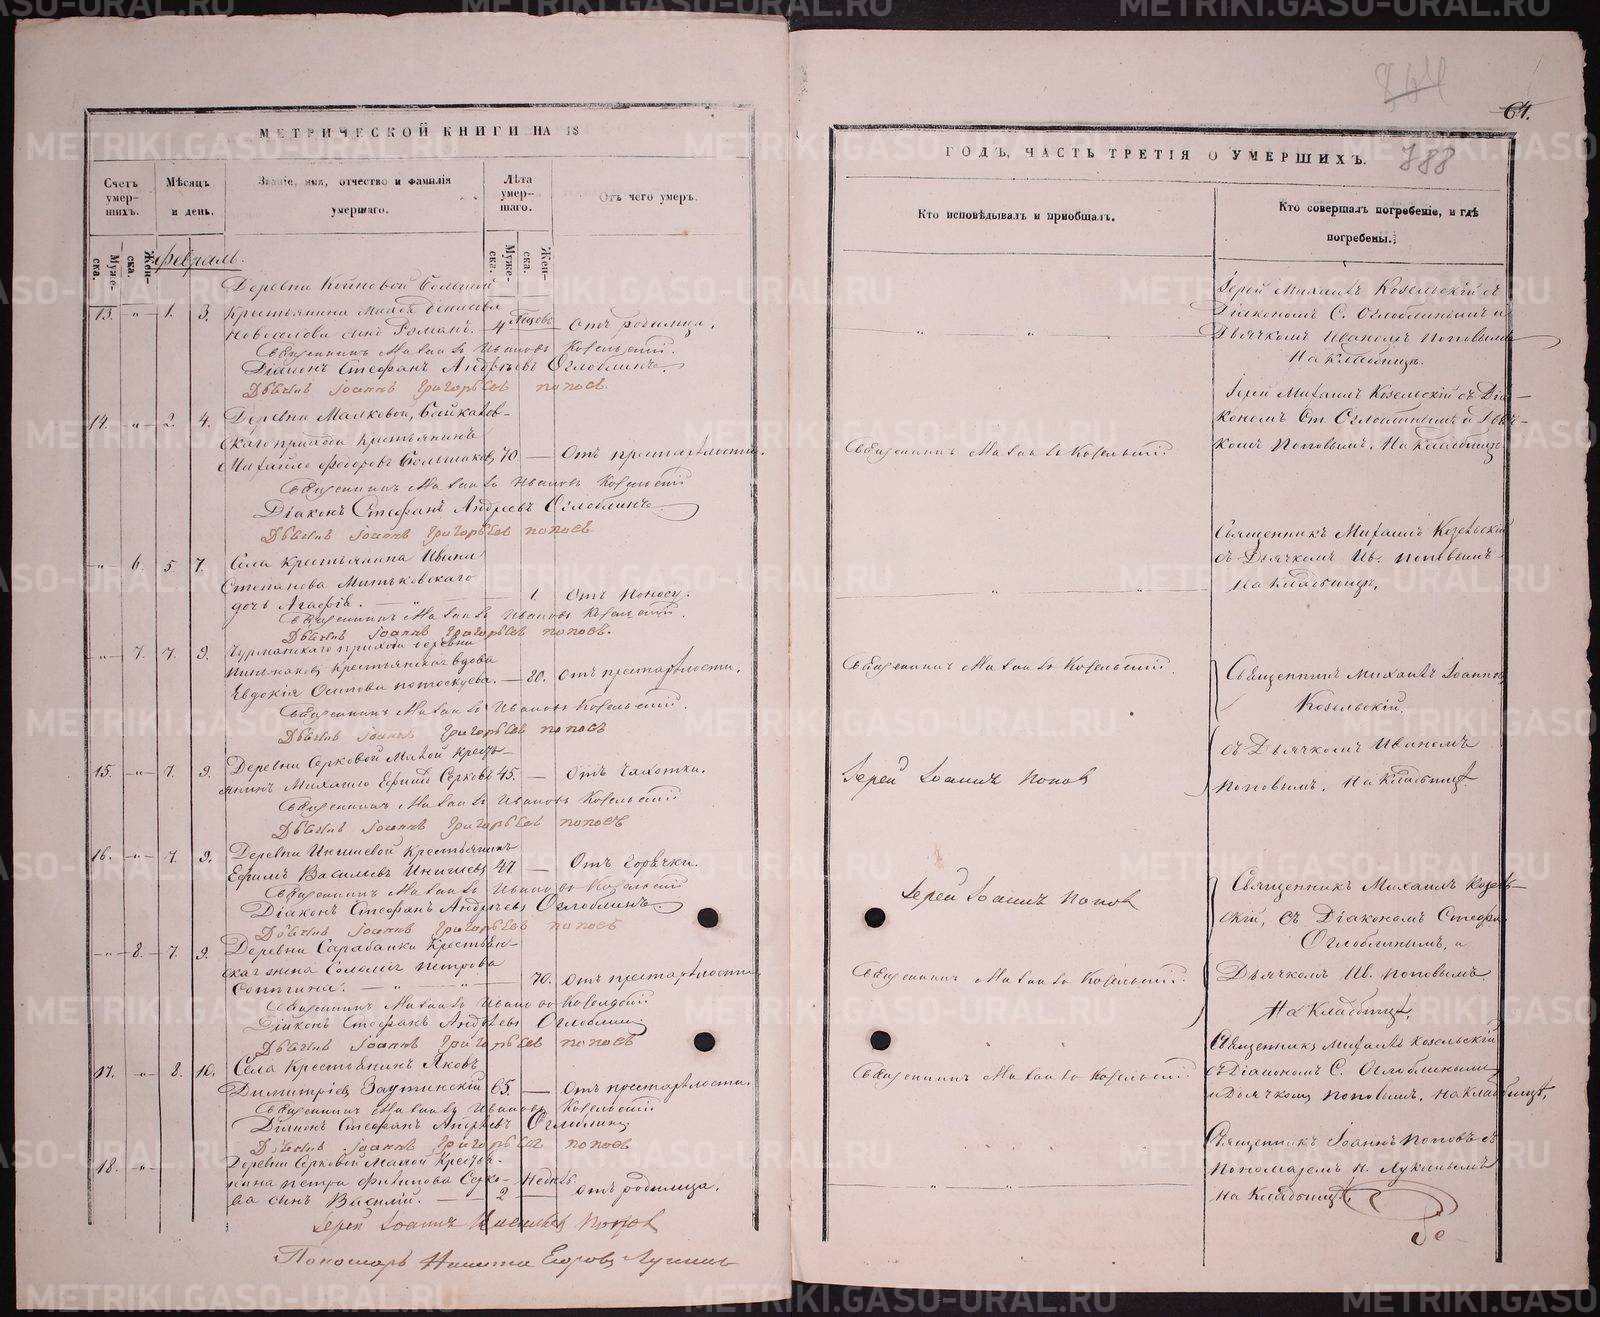 МЕТРИЧЕСКОЙ КНИГИ НА 18
Счетъ умер- шихъ.
Мѣсяцъ и день.
Званіе, имя, отчество и фамилія умершаго.
Лѣта умер- шаго.
Отъ чего умеръ.
Муже- ска.
Жен- ска.
Муже- ска.
Жен- ска.
Февраль.
Деревни Большой
13. -"- 1. 3. Крестьянина
сынъ Романъ. 4 отъ родимца.
Священникъ Михаилъ Ивановъ Козельскій.
Діаконъ Стефанъ Андреевъ Оглоблинъ.
Дьячекъ Іоаннъ Григорьевъ Поповъ
14. -"- 2. 4. Деревни Маяковой, Байкалов-
скаго прихода крестьянинъ
Михайло Федоровъ Большаковъ 70 — Отъ престарѣлости.
Священникъ Михаилъ Ивановъ Козельскій
Діаконъ Стефанъ Андреевъ Оглоблинъ
Дьячекъ Іоаннъ Григорьевъ Поповъ
-"- 6. 5. 7. Села крестьянина Ивана
Степанова Митьковскаго
дочь Агафія. 1 отъ поносу.
Священникъ Михаилъ Ивановъ Козельскій.
Дьячекъ Іоаннъ Григорьевъ Поповъ.
-"- 7. 7. 9. прихода деревни
крестьянская вдова
Евдокія Осипова — 80. отъ престарѣлости.
Священникъ Михаилъ Ивановъ Козельскій.
Дьячекъ Іоаннъ Григорьевъ Поповъ
15. -"- 7. 9. Деревни Серковой Малой кресть-
янинъ Михайло Серковъ 45. — отъ чахотки.
Священникъ Михаилъ Ивановъ Козельскій
Дьячекъ Іоаннъ Григорьевъ Поповъ
16. -"- 7. 9. Деревни Инишевой крестьянинъ
Ефимъ Васильевъ Инишевъ 47 — Отъ горячки.
Священникъ Михаилъ Ивановъ Козельскій
Діаконъ Стефанъ Андреевъ Оглоблинъ.
Дьячекъ Іоаннъ Григорьевъ Поповъ
-"- 8. 7. 9. Деревни Сарабайки крестьян-
ская жена Петрова
70. отъ престарѣлости
Священникъ Михаилъ Ивановъ Козельскій
Діаконъ Стефанъ Андреевъ Оглоблинъ
Дьячекъ Іоаннъ Григорьевъ Поповъ
17. -"- 8. 10. Села Крестьянинъ Яковъ
Димитріевъ 65. — отъ престарѣлости.
Священникъ Михаилъ Ивановъ Козельскій
Діаконъ Стефанъ Андреевъ Оглоблинъ
Дьячекъ Іоаннъ Григорьевъ Поповъ
18. -"- Деревни Серковой Малой крестья-
нина Петра Филипова Серко- Недѣль
ва сынъ Василій. — 2 — отъ родимца.
Іерей Іоаннъ Поповъ
Пономарь Никита Егоровъ Лукинъ
64.
ГОДЪ, ЧАСТЬ ТРЕТІЯ О УМЕРШИХЪ.
788
Кто исповѣдывалъ и пріобщалъ.
Кто совершалъ погребеніе, и гдѣ погребены.
Іерей Михаилъ Козельскій съ
Діякономъ С. Оглоблинымъ и
Дьячкомъ Иваномъ Поповымъ
На кладбищѣ.
Священникъ Михаилъ Козельскій
Іерей Михаилъ Козельскій съ Діа-
кономъ Ст. Оглоблинымъ и Дьяч-
комъ Поповымъ. На кладбищѣ
Священникъ Михаилъ Козельскій
съ Дьячкомъ Ив. Поповымъ
на кладбищѣ.
Священникъ Михаилъ Козельскій
Священникъ Михаилъ Іоанновъ
Козельскій.
съ Дьячкомъ Иваномъ
Поповымъ. На кладбищѣ
Іерей Іоаннъ Поповъ
Іерей Іоаннъ Поповъ
Священникъ Михаилъ Козель-
скій, съ Діакономъ Стефан.
Оглоблинымъ, и
Дьячкомъ Ив. Поповымъ
На кладбищѣ.
Священникъ Михаилъ Козельскій.
Священникъ Михаилъ Козельскій
Священникъ Михаилъ Козельскій
съ Діакономъ С. Оглоблинымъ
и Дьячкомъ Поповымъ. На кладбищѣ.
Священникъ Іоаннъ Поповъ съ
Пономаремъ Н. Лукинымъ
на кладбищѣ.
METRIKI.GASO-URAL.RU